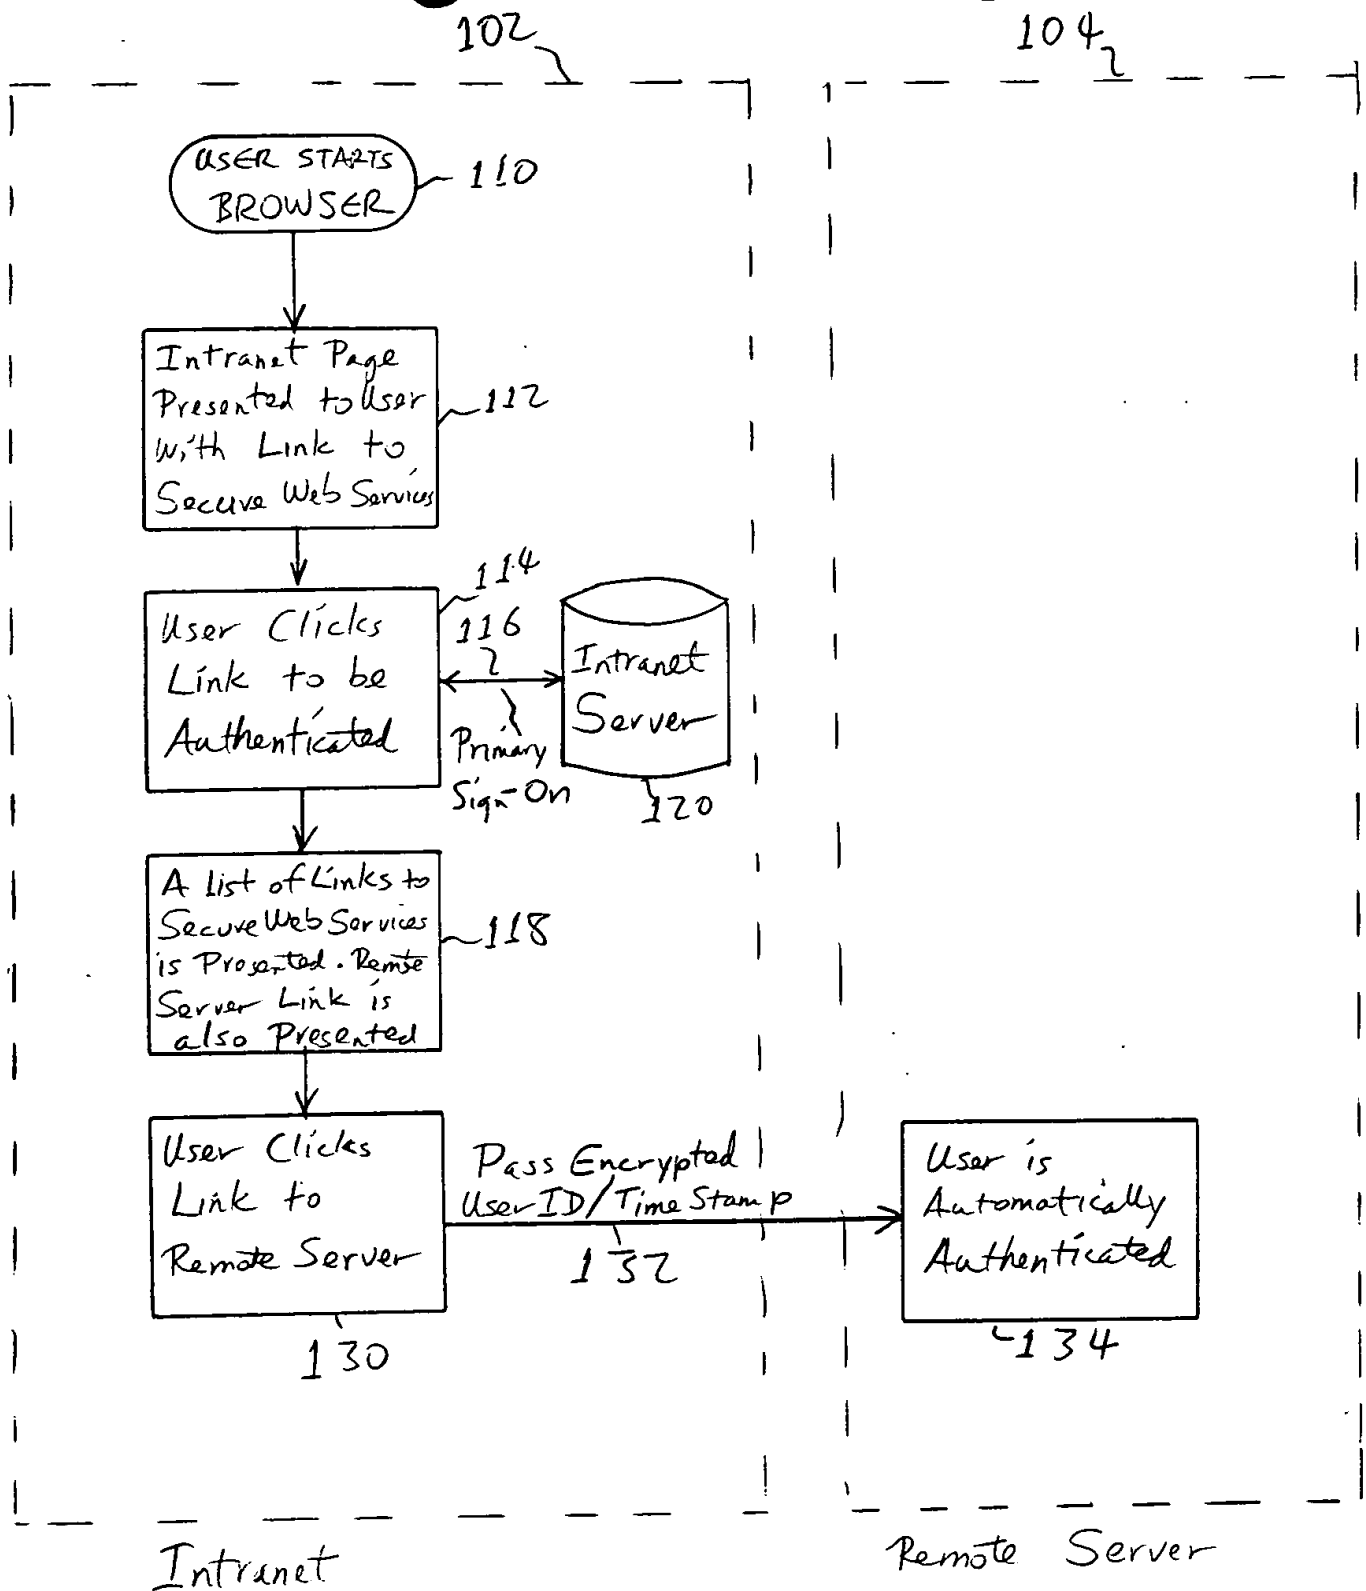 102
104
USER STARTS
BROWSER
110
Intranet Page
Presented to User
With Link to
Secure Web Services
112
User Clicks
Link to be
Authenticated
114
116
Primary
Sign-On
Intranet
Server
120
A list of Links to
Secure Web Services
is Presented. Remote
Server Link is
also Presented
118
User Clicks
Link to
Remote Server
130
Pass Encrypted
User ID/Time Stamp
132
User is
Automatically
Authenticated
134
Intranet
Remote Server